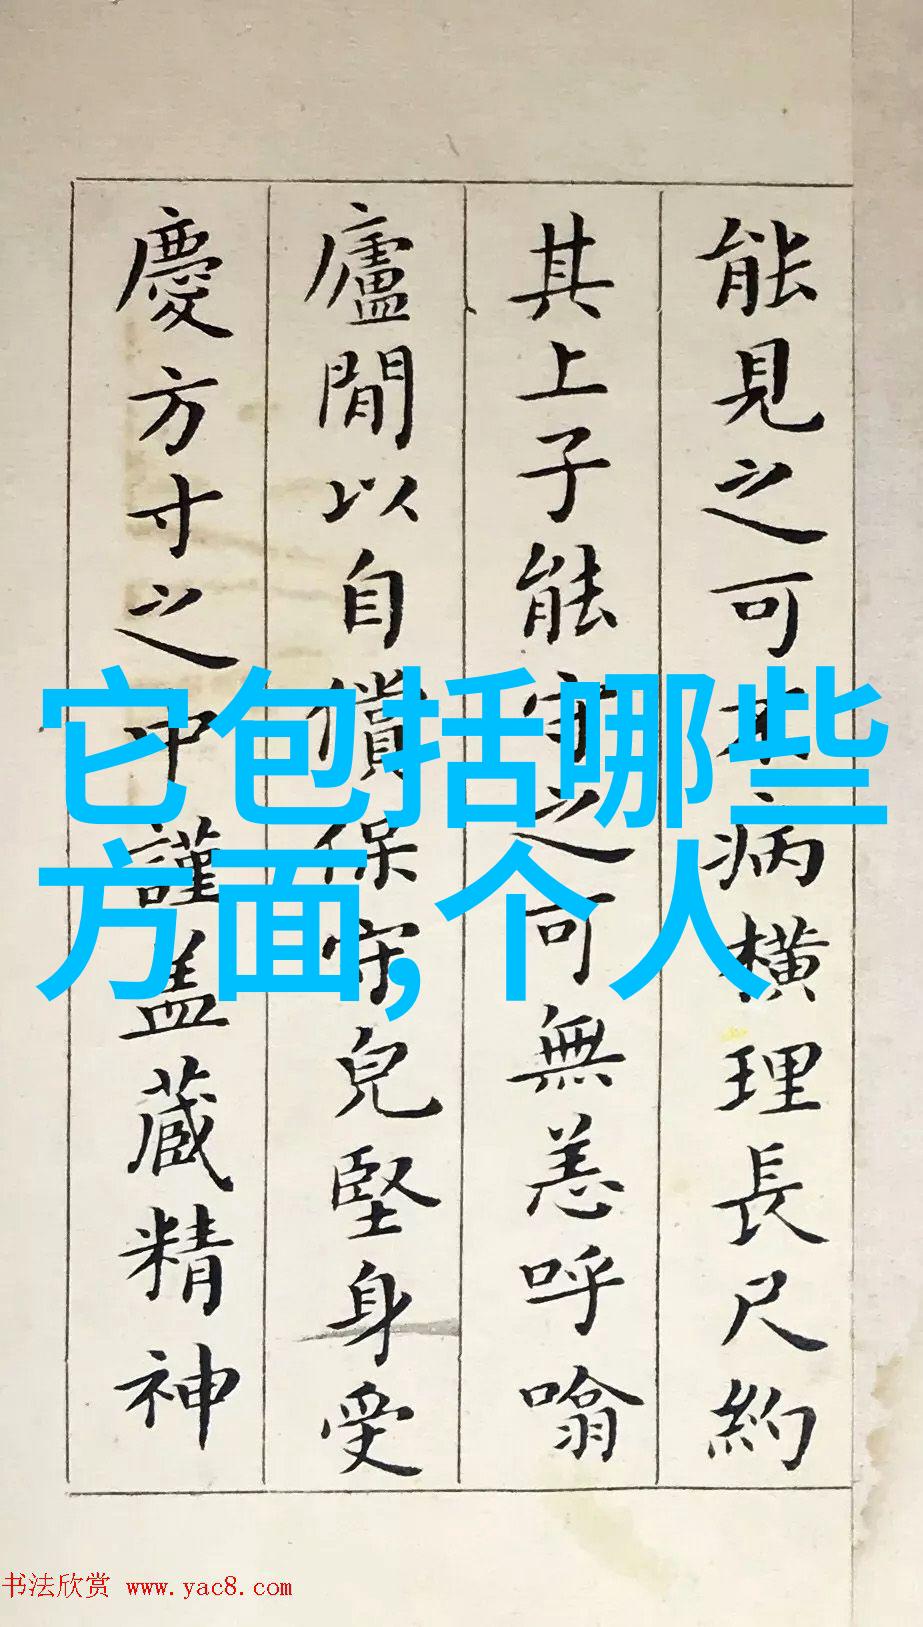 能見之可不病横理長尺約
其上子能守之可無恙呼噏
廬間以自償保守皃堅身受
慶方寸之中謹盖蔵精神
它包括哪些
方面,个人
书法欣赏 www.yac8.com